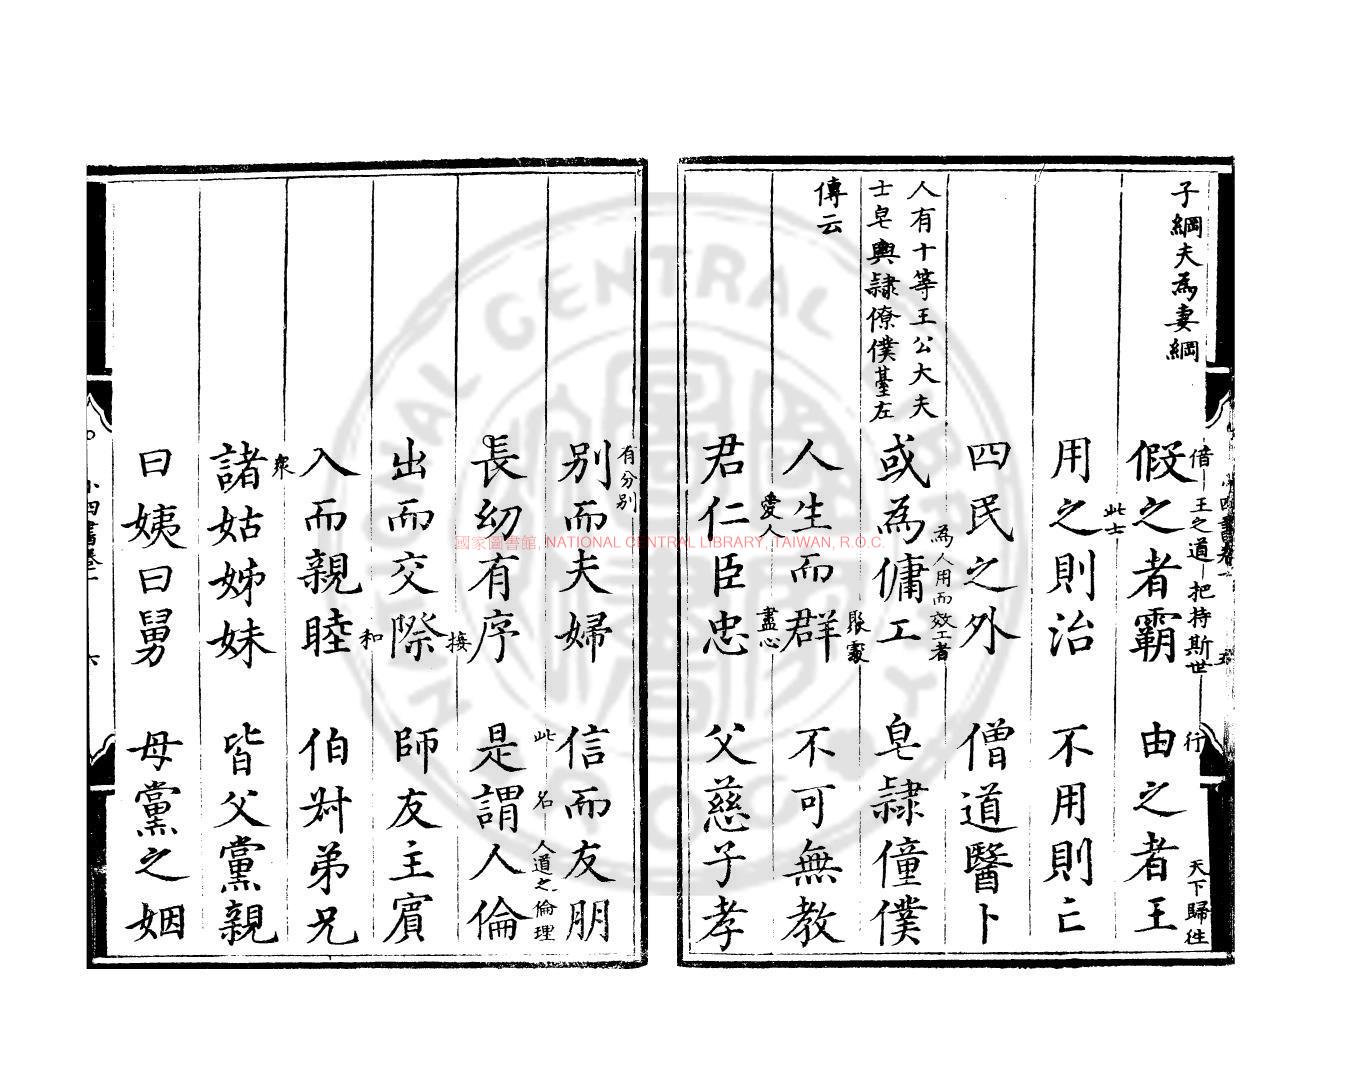 子綱夫為妻綱
借 王之道 把持斯世
行 天下歸往
假之者霸 由之者王
此士
用之則治 不用則亡
四民之外 僧道醫卜
為人用而效工者
人有十等王公大夫
士皂輿隸僚僕臺左
傳云
或為傭工 皂隸僮僕
聚處
人生而群 不可無教
愛人 盡心
君仁臣忠 父慈子孝
小四書卷一
五
有分別
別而夫婦 信而友朋
此 名 人道之倫理
長幼有序 是謂人倫
接
出而交際 師友主賓
和
入而親睦 伯叔弟兄
眾
諸姑姊妹 皆父黨親
曰姨曰舅 母黨之姻
小四書卷一
六
國家圖書館, NATIONAL CENTRAL LIBRARY, TAIWAN, R.O.C.